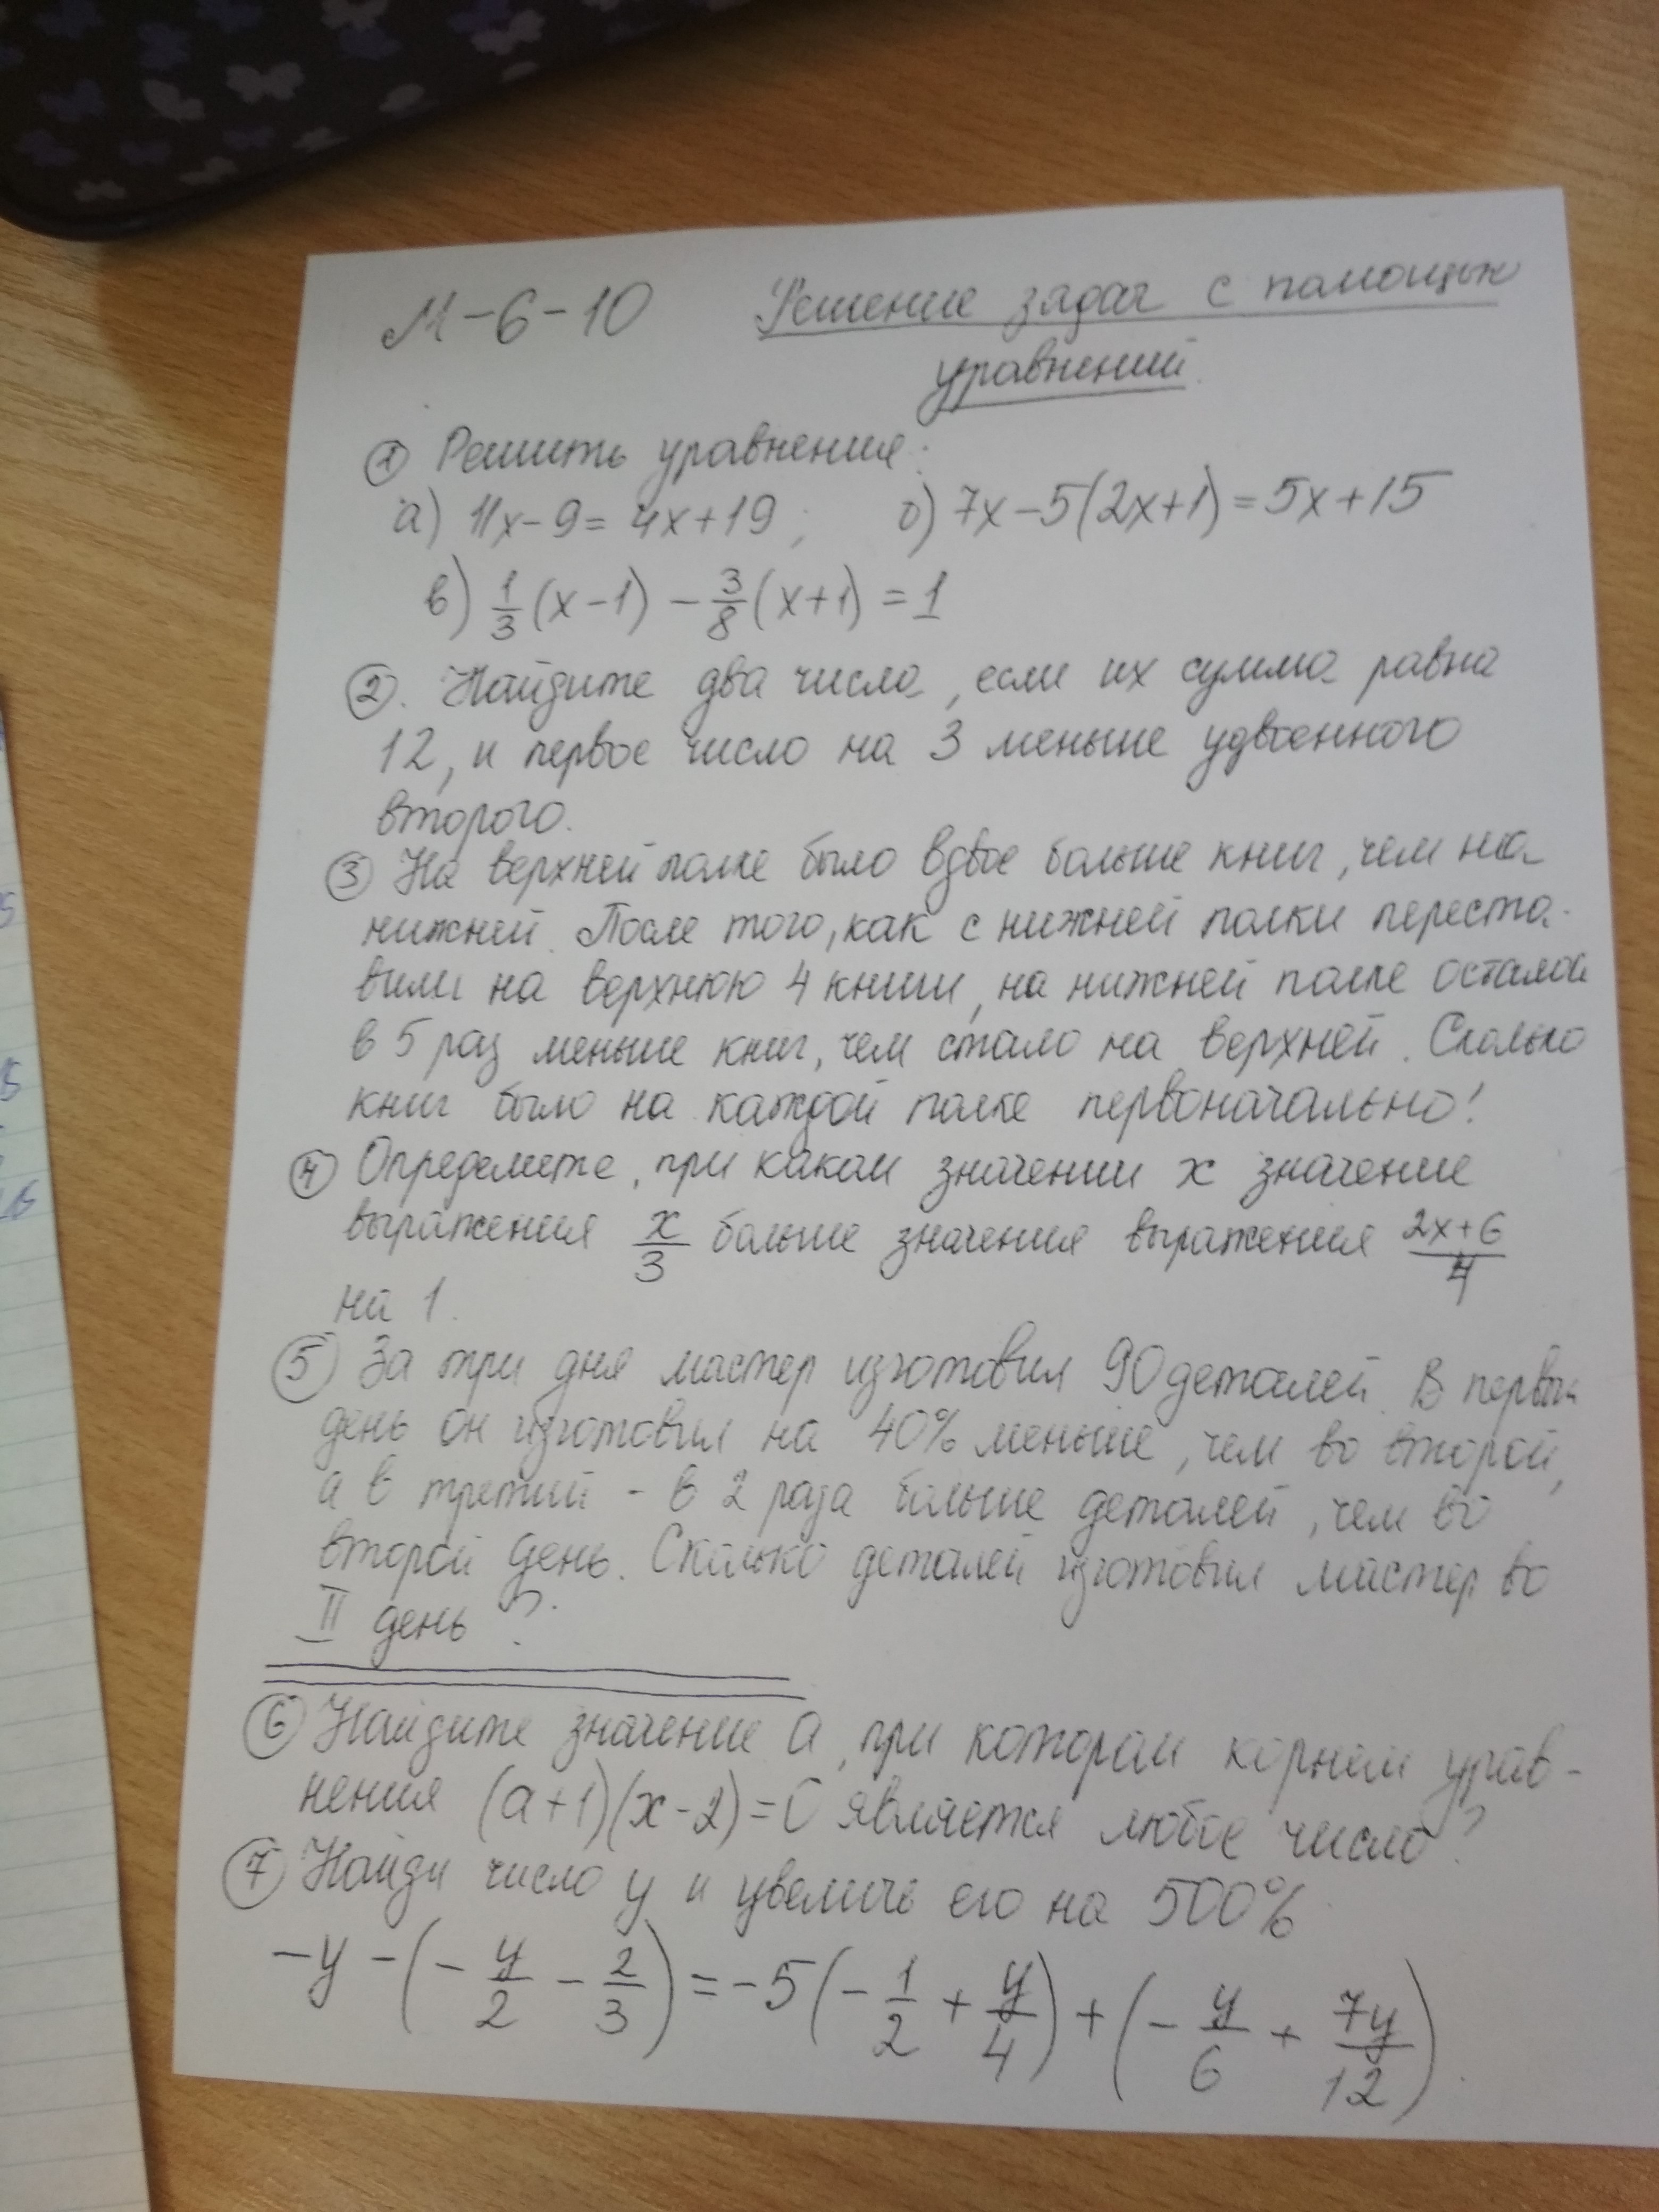 М-6-10 Решение задач с помощью
уравнений.
① Решить уравнения:
а) 11x-9=4x+19; б) 7x-5(2x+1)=5x+15
в) 1/3(x-1) - 3/8(x+1) = 1
②. Найдите два числа, если их сумма равна
12, и первое число на 3 меньше удвоенного
второго.
③ На верхней полке было вдвое больше книг, чем на
нижней. После того, как с нижней полки переста-
вили на верхнюю 4 книги, на нижней полке осталось
в 5 раз меньше книг, чем стало на верхней. Сколько
книг было на каждой полке первоначально?
④ Определите, при каком значении x значение
выражения x/3 больше значения выражения (2x+6)/4
на 1.
⑤ За три дня мастер изготовил 90 деталей. В первый
день он изготовил на 40% меньше, чем во второй,
а в третий - в 2 раза больше деталей, чем во
второй день. Сколько деталей изготовил мастер во
II день?
⑥ Найдите значение a, при котором корнем урав-
нения (a+1)(x-2)=0 является любое число?
⑦ Найди число y и увеличь его на 500%
-y-(-y/2-2/3)=-5(-1/2+y/4)+(-y/6+7y/12).